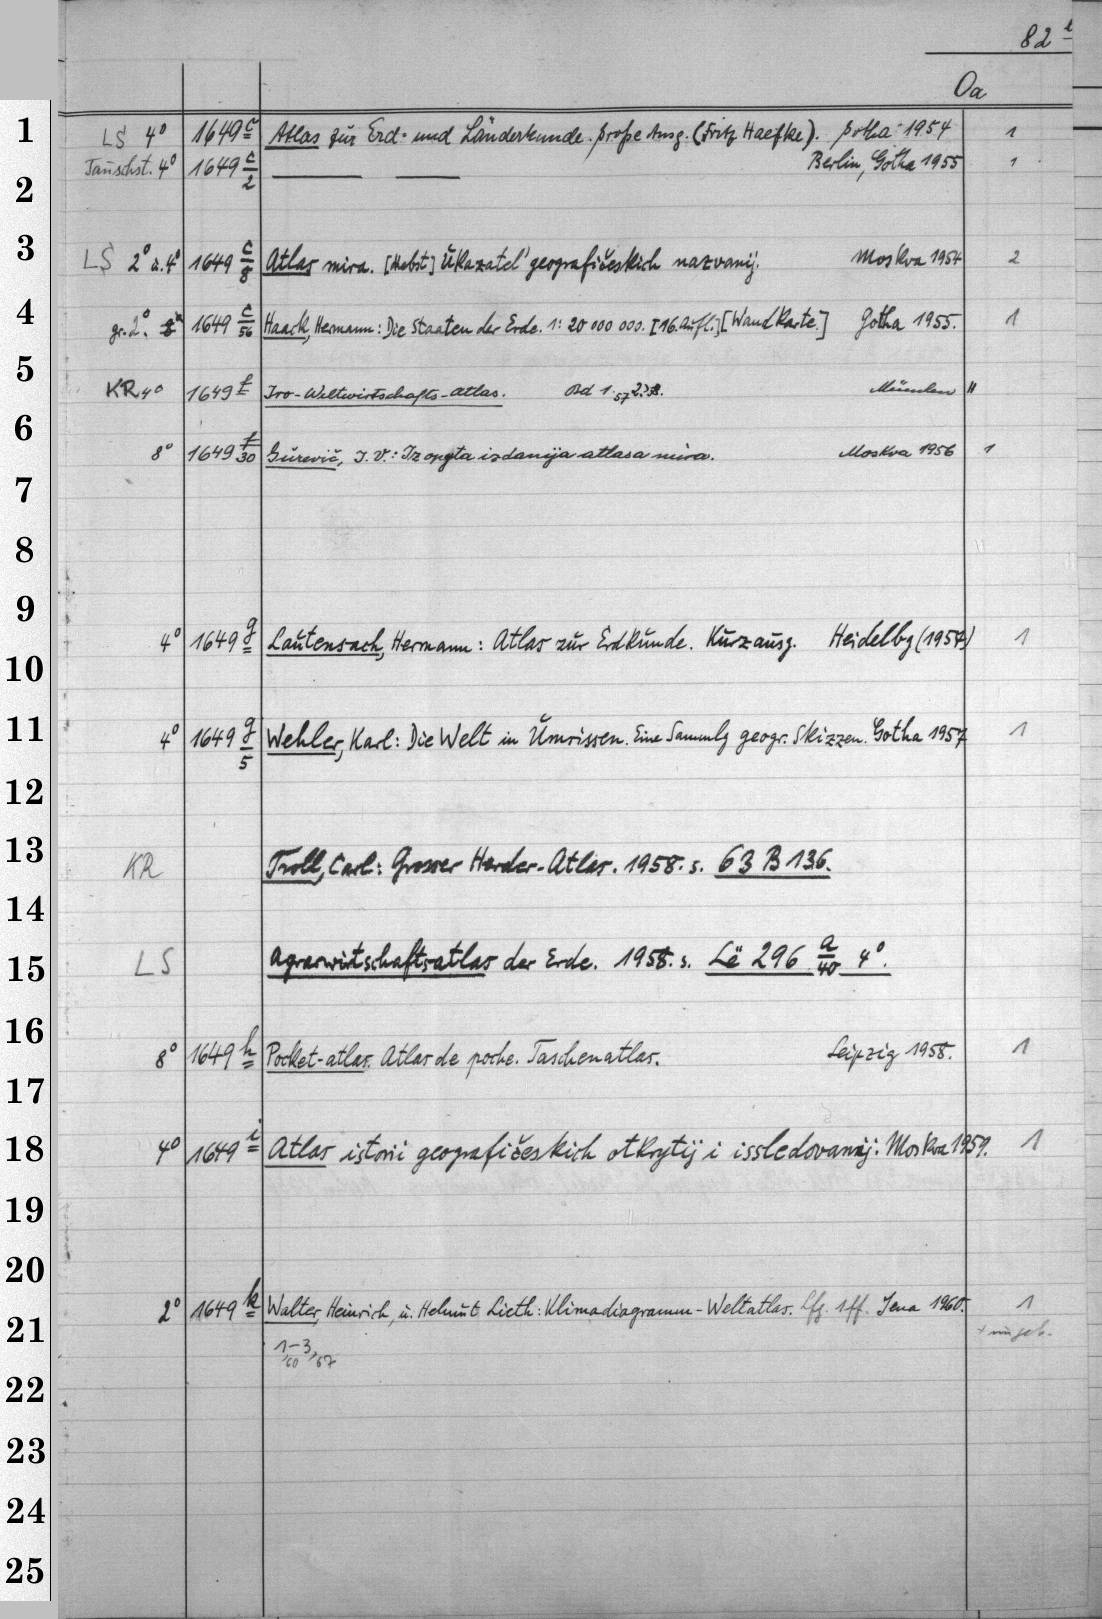 82 l
Oa
1 LS 4° 1649 c Atlas zur Erd- und Länderkunde. Große Ausg. (Fritz Haefke). Gotha 1954 1
2 Tauschst. 4° 1649 c/2 Berlin, Gotha 1955 1
3 LS 2° u. 4° 1649 c/8 Atlas mira. [Nebst] Ukazatel' geografičeskich nazvanij. Moskva 1954 2
4 gr. 2°. 1649 c/56 Haack, Hermann: Die Staaten der Erde. 1: 20 000 000. [16. Aufl.] [Wandkarte.] Gotha 1955. 1
5 KR 4° 1649 f Iro-Weltwirtschafts-Atlas. Bd 1. München "
6 8° 1649 f/30 Gurevič, I. V.: Iz opyta izdanija atlasa mira. Moskva 1956 1
7
8
9
10 4° 1649 g Lautensach, Hermann: Atlas zur Erdkunde. Kurzausg. Heidelbg (1954) 1
11 4° 1649 g/5 Wehler, Karl: Die Welt in Umrissen. Eine Sammlg geogr. Skizzen. Gotha 1957 1
12
13 KR Troll, Carl: Grosser Herder-Atlas. 1958. s. 63 B 136.
14
15 LS Agrarwirtschaftsatlas der Erde. 1958. s. Lë 296 a/40 4°.
16 8° 1649 h Pocket-atlas. Atlas de poche. Taschenatlas. Leipzig 1958. 1
17
18 4° 1649 i Atlas istorii geografičeskich otkrytij i issledovanij. Moskva 1959. 1
19
20
21 2° 1649 k Walter, Heinrich, u. Helmut Lieth: Klimadiagramm-Weltatlas. Lfg. 1ff. Jena 1960. 1
1-3, 60, 67
22
23
24
25